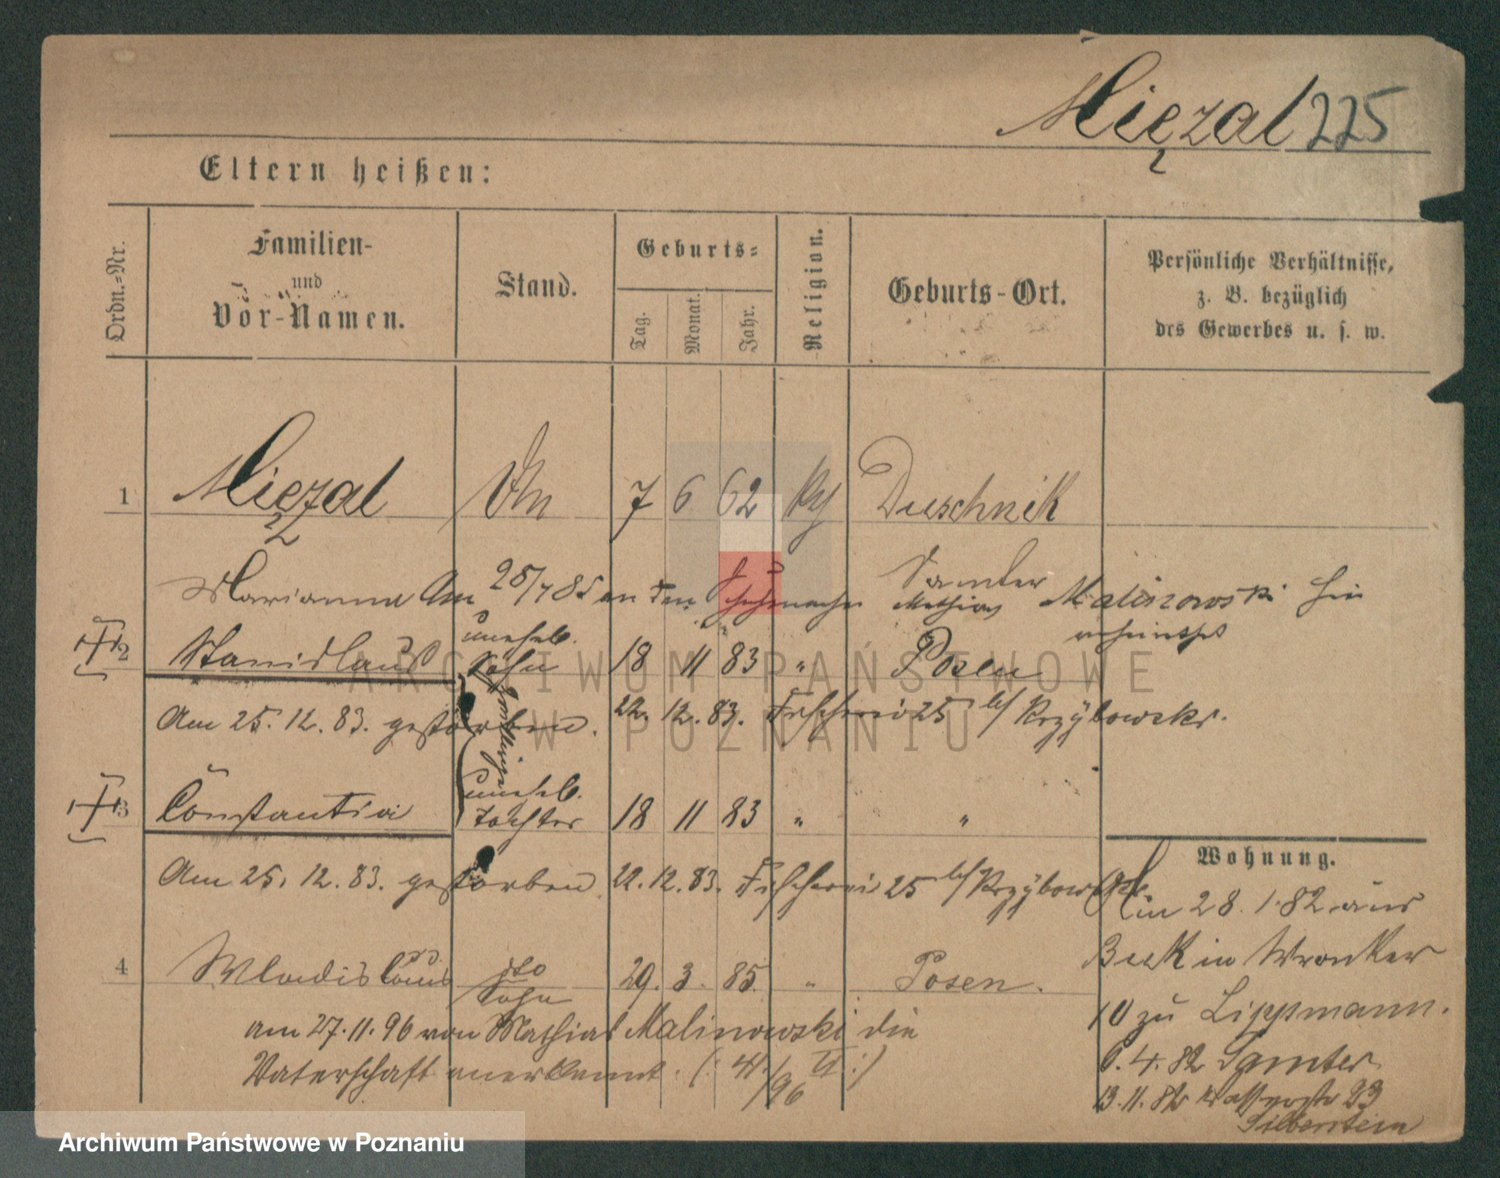 Mięzal 225
Eltern heißen:
Ordn.-Nr.
Familien-
und
Vor-Namen.
Stand.
Geburts-
Tag.
Monat.
Jahr.
Religion.
Geburts-Ort.
Persönliche Verhältnisse,
z. B. bezüglich
des Gewerbes u. s. w.
1 Mięzal 7 6 62 Duschnik
Samter
Marianna Am 25/7 85 an den Schuhmacher Mathias Malinowski hier
verheirathet
2 Stanislaus unehel. Sohn 18 11 83 " Posen
Am 25. 12. 83. gestorben. 22. 12. 83. Fischerei 25 b/ Krzybowski.
Zwillinge
3 Constantia unehel. Tochter 18 11 83 " "
Am 25. 12. 83. gestorben 22. 12. 83. Fischerei 25 b/ Krzybowski
Wohnung.
28. 1. 82. aus
4 Wladislaus dto Sohn 29. 3. 85. " Posen.
Buk in Wronker
am 27. 11. 96 von Mathias Malinowski die
10 zu Lippmann.
Vaterschaft anerkannt.
6. 4. 82 Samter
13. 11. 82 Wasserstr 23
Silberstein
ARCHIWUM PAŃSTWOWE
W POZNANIU
Archiwum Państwowe w Poznaniu